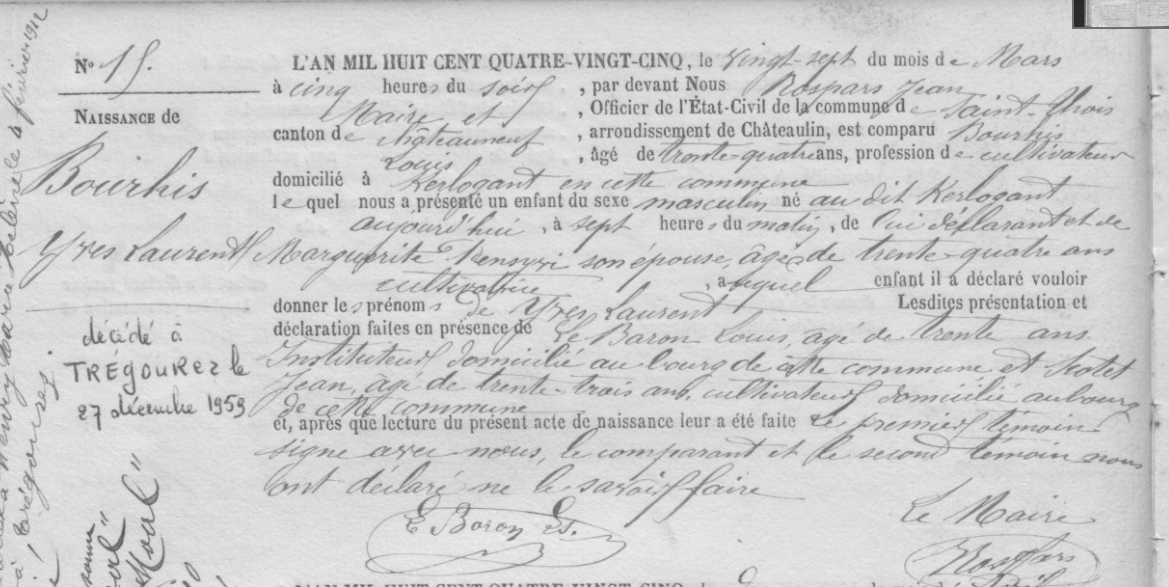 N° 15.
NAISSANCE de
Bourhis
Yves Laurent
décédé à
TRÉGOUREZ le
27 décembre 1959
L'AN MIL HUIT CENT QUATRE-VINGT-CINQ, le vingt-sept du mois de Mars
à cinq heures du soir, par devant Nous Rospars Jean
Maire et, Officier de l'État-Civil de la commune de Saint-Thois
canton de Châteauneuf, arrondissement de Châteaulin, est comparu Bourhis
Louis, âgé de trente-quatre ans, profession de cultivateur
domicilié à Kerlogant en cette commune
lequel nous a présenté un enfant du sexe masculin né au dit Kerlogant
aujourd'hui, à sept heures du matin, de lui déclarant et de
Marguerite son épouse, âgée de trente-quatre ans
cultivatrice, auquel enfant il a déclaré vouloir
donner les prénoms de Yves Laurent Lesdites présentation et
déclaration faites en présence de Le Baron Louis, âgé de trente ans
Instituteur domicilié au bourg de cette commune et
Jean, âgé de trente-trois ans, cultivateur domicilié au bourg
de cette commune
et, après que lecture du présent acte de naissance leur a été faite le premier témoin
signe avec nous, le comparant et le second témoin nous
ont déclaré ne le savoir faire
Le Maire
Le Baron Ls.
Rospars
à Trégourez
février 1912
L'AN MIL HUIT CENT QUATRE-VINGT-CINQ